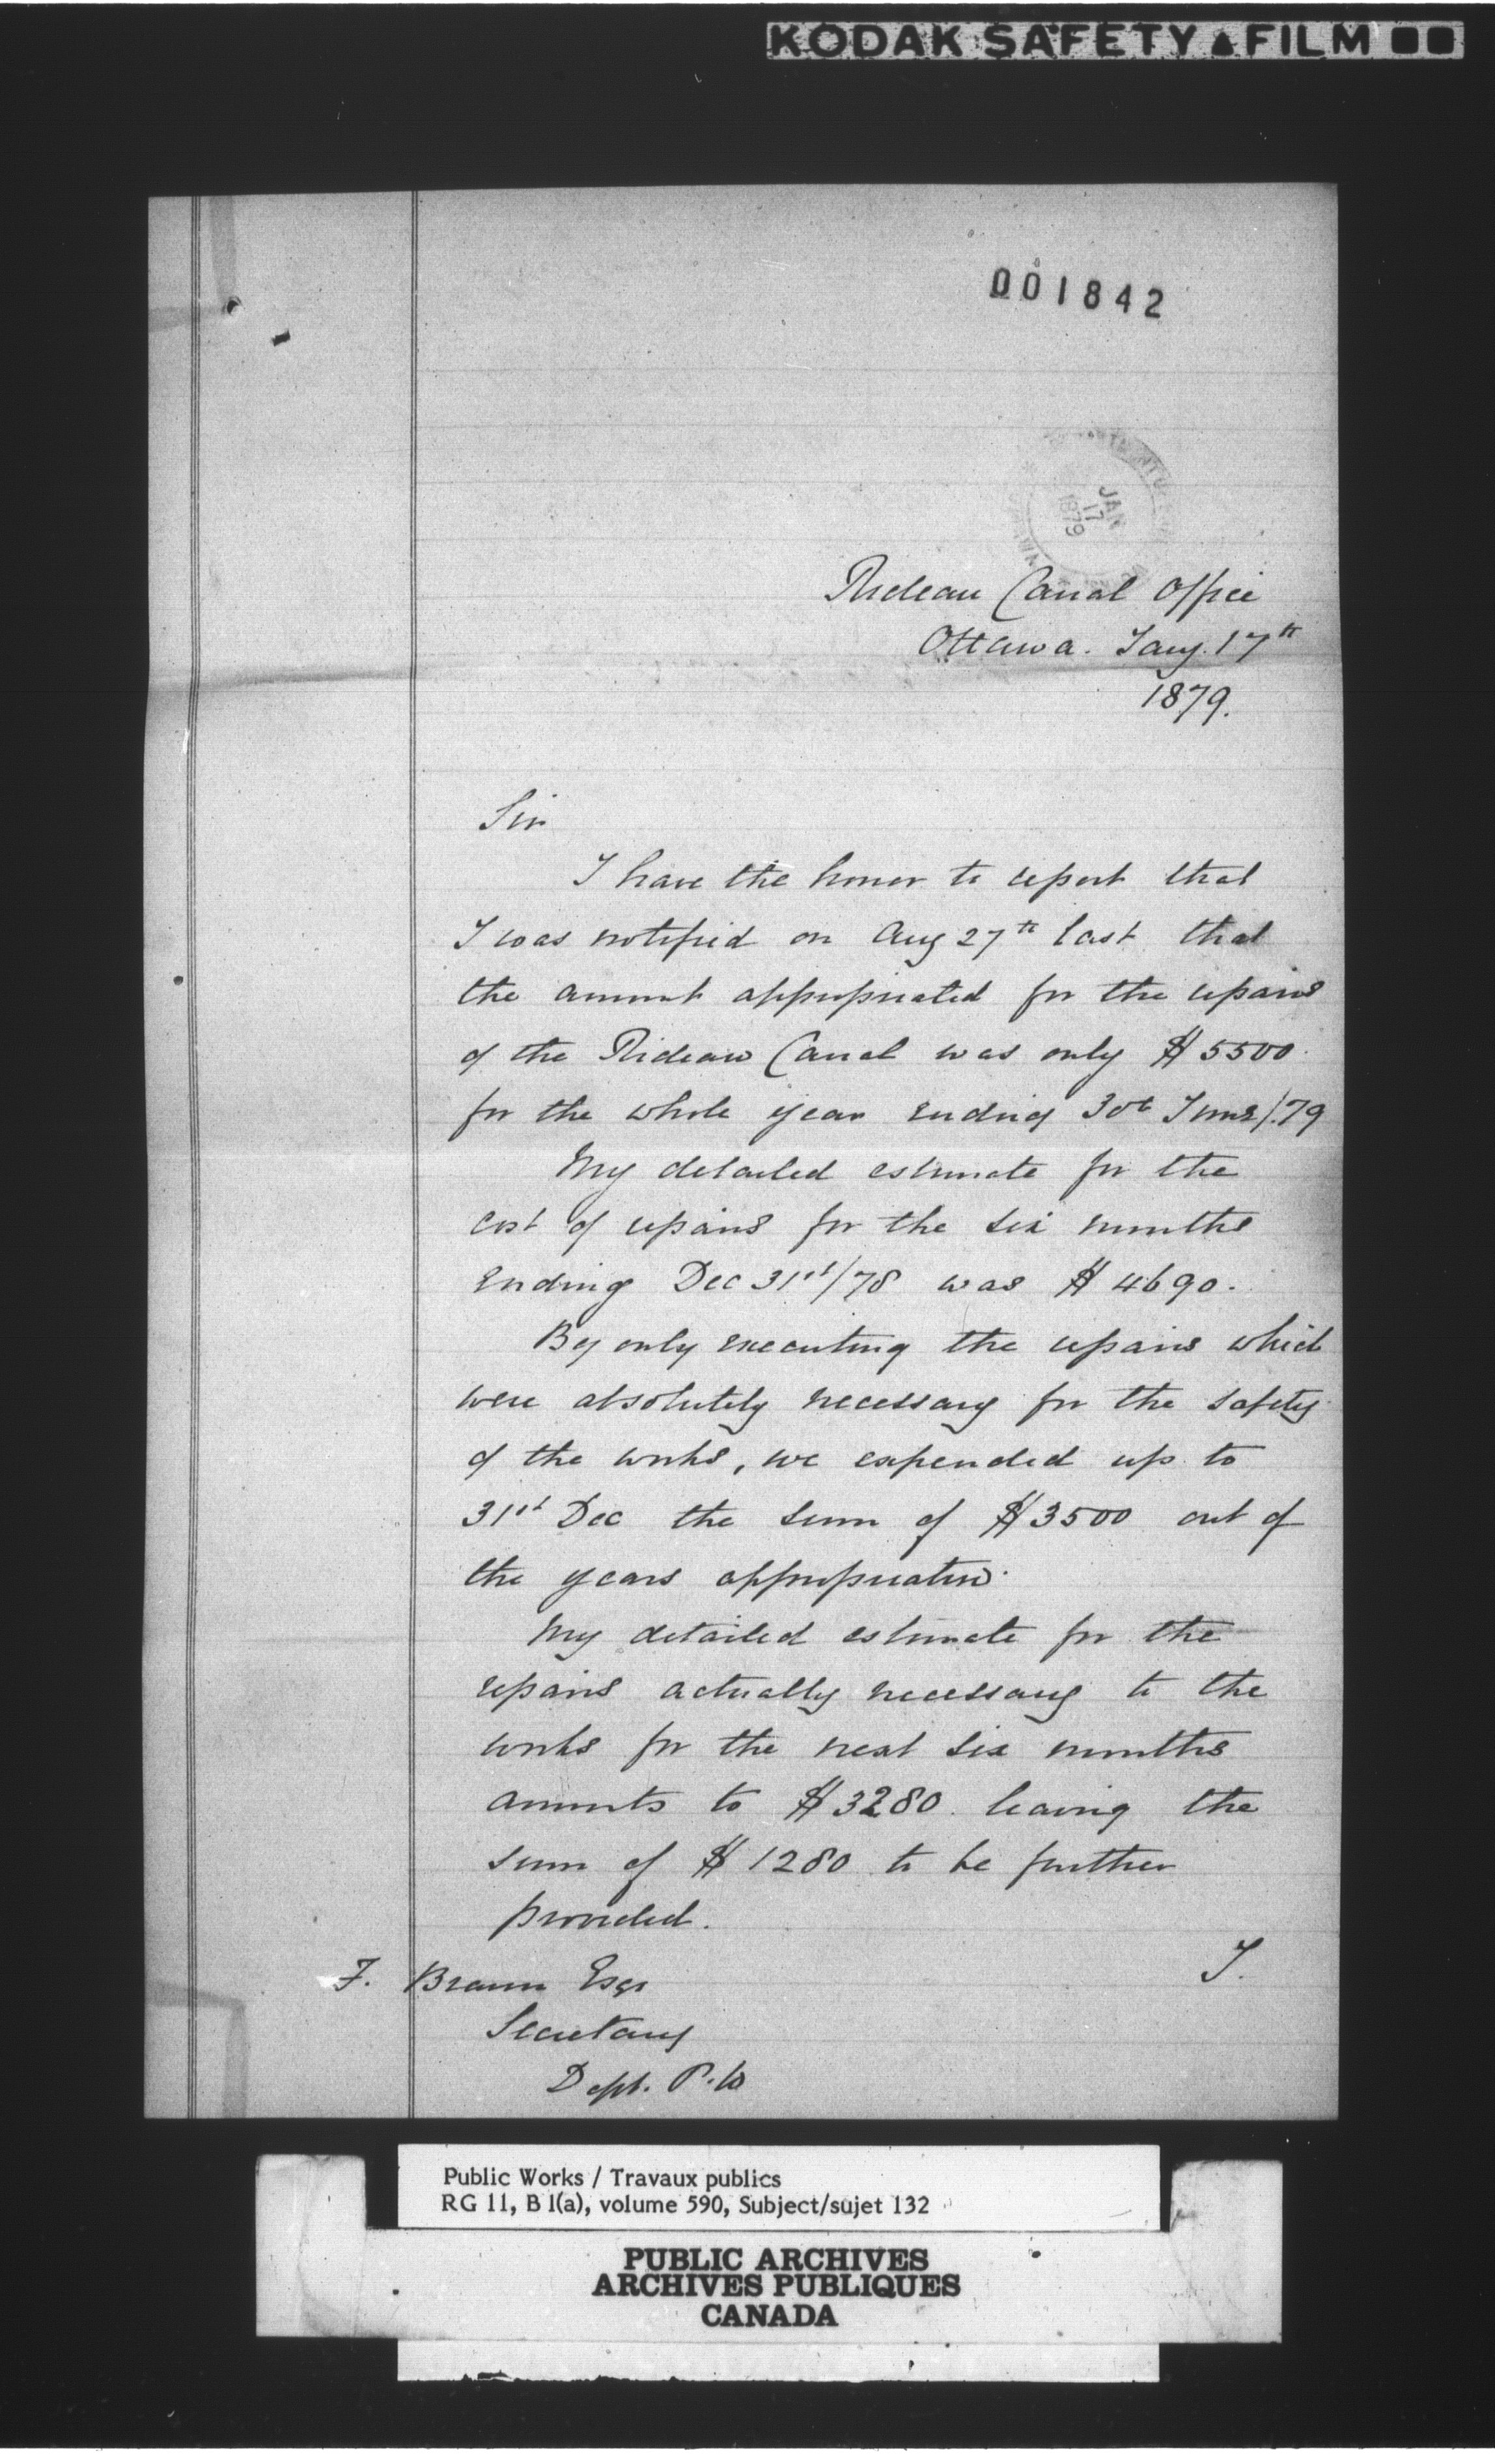 KODAK SAFETY FILM
001842
JAN
17
1879
Rideau Canal Office
Ottawa. Jany. 17th
1879.
Sir
I have the honor to report that
I was notified on Aug 27th last that
the amount appropriated for the repairs
of the Rideau Canal was only $5500
for the whole year ending 30th June/79
My detailed estimate for the
cost of repairs for the six months
ending Dec 31st/78 was $4690.
By only executing the repairs which
were absolutely necessary for the safety
of the works, we expended up to
31st Dec the sum of $3500 out of
the years appropriation.
My detailed estimate for the
repairs actually necessary to the
works for the next six months
amounts to $3280 leaving the
sum of $1280 to be further
provided.
I.
F. Braun Esqr
Secretary
Dept. P.W
Public Works / Travaux publics
RG 11, B 1(a), volume 590, Subject/sujet 132
PUBLIC ARCHIVES
ARCHIVES PUBLIQUES
CANADA